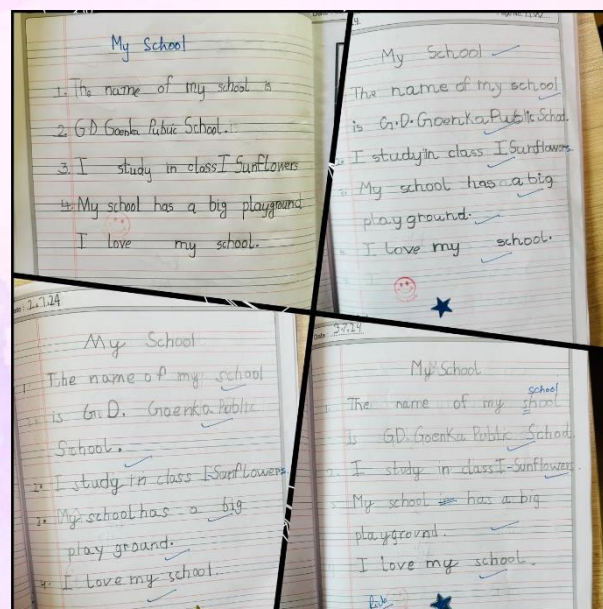 My School
1. The name of my school is
2. G D Goenka Public School.
3. I study in class I Sunflowers
4. My school has a big playground
I love my school.
My School
The name of my school
is G.D. Goenka Public School.
2. I study in class I Sunflowers
3. My school has a big
playground.
I love my school.
Date: 2.7.24
My School
1. The name of my school
is G.D. Goenka Public
School.
2. I study in class I-Sunflowers
3. My school has a big
play ground.
4. I love my school.
Date: 3.7.24
My School
school
1. The name of my shool
is GD. Goenka Public School.
2. I study in class I-Sunflowers.
3. My school has a big
playground.
I love my school.